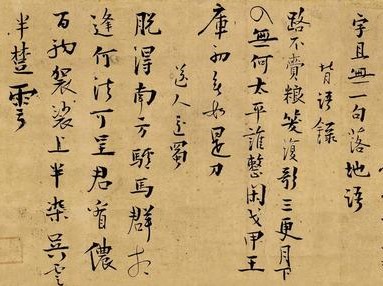 字且無一句落地語
語錄
路不賫粮笑復歌三更月下
入無何太平誰整閑戈甲王
庫初無如是刀
送人之蜀
脫得南方驢馬群相
逢何法可呈君看儂
百衲袈裟上半染吳雲
半楚雲